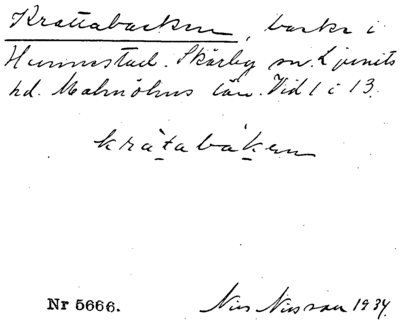 Krattabacken, backe i
Hunnestad. Skårby sn. Ljunits
hd. Malmöhus län. Vid 1 i 13.
kratabaken
Nr 5666.
Nils Nilsson 1934.